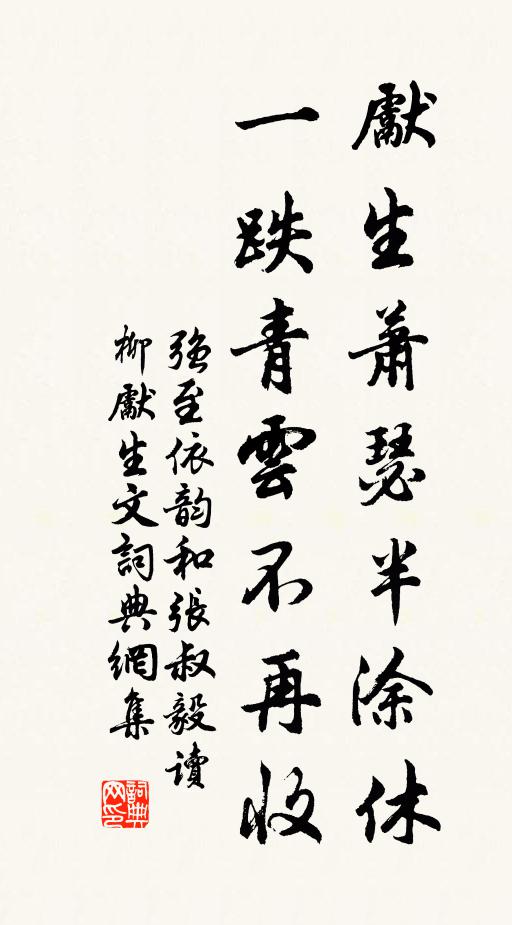 獻生蕭瑟半涂休
一跌青雲不再收
強至依韵和張叔毅讀
柳獻生文詞典網集
詞典網印